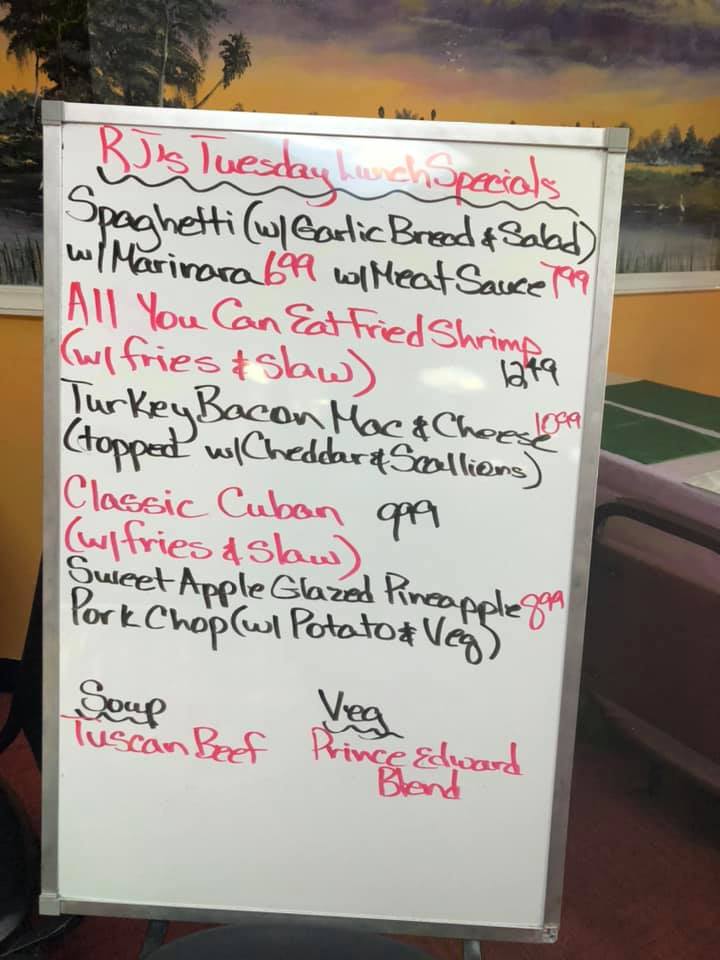 RJ's Tuesday Lunch Specials
Spaghetti (w/ Garlic Bread & Salad)
w/ Marinara 6.99 w/ Meat Sauce 7.99
All You Can Eat Fried Shrimp
(w/ fries & slaw) 12.49
Turkey Bacon Mac & Cheese 10.99
(topped w/ Cheddar & Scallions)
Classic Cuban 9.99
(w/ fries & slaw)
Sweet Apple Glazed Pineapple 8.99
Pork Chop (w/ Potato & Veg)
Soup
Tuscan Beef
Veg
Prince Edward
Blend